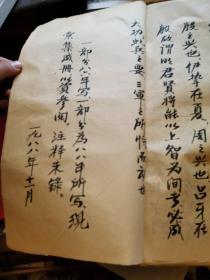 殷之兴也伊挚在夏周之兴也吕牙在
殷故明君賢將能以上智为间者必成
大功此兵之要三軍之所恃而动也
一部分八六年写一部分为八八年所写,现
汇集成册以资参阅,注释未錄。
一九八八年十一月